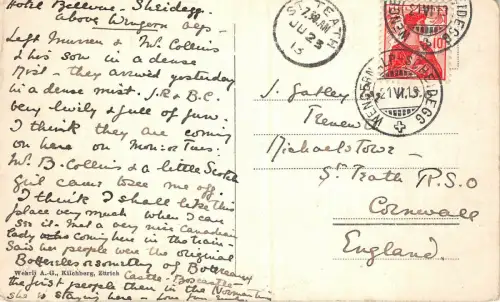 Hotel Bellevue - Sheidegg
above Wengern Alps -
Left Murren & Mr Collins
& his son in a dense
mist - they arrived yesterday
in a dense mist. J.R & B.C.
very lively & full of fun.
I think they are coming
on here on Mon: or Tues.
Mr B. Collins & a little Scotch
girl came to see me off
I think I shall like this
place very much when I can
see it. Met a very nice Canadian
lady coming here in the train -
Said her people were the original
Botterells or something of Bottreaux
Castle - Boscastle -
the first people then in the Norman time
she is staying here - Love from
Wehrli A.-G., Kilchberg, Zürich
ST TEATH
7.30 AM
JU 23
13
WENGERNALP-SCHEIDEGG
21.VI.13
10
WENGERNALP-SCHEIDEGG
21.VI.13
J. Gatley
Trenew
Michaelstow
St. Teath R.S.O
Cornwall
England.